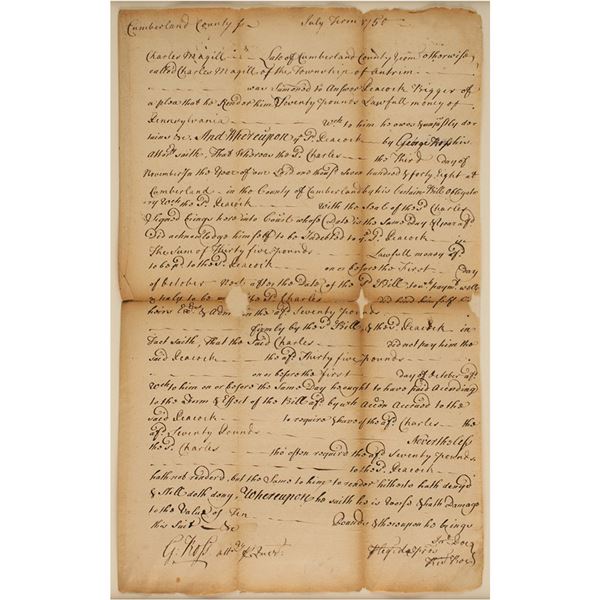 Cumberland County ss July Term 1750
Charles Magill Late of Cumberland County yeom otherwise
called Charles Magill of the Township of Antrim
was Sumoned to Answer Peacock Bigger of
a plea that he Render him Seventy pounds Lawfull money of
Pennsylvania wch to him he owes & unjustly de
tains &c. And Whereupon ye sd Peacock by George Ross his
attory saith, That Whereas the sd Charles the Third day of
November In the Year of our Lord one thousd Seven hundred & forty Eight at
Cumberland in the County of Cumberland by his Certain Bill obligato
ry wch the sd Peacock With the Seal of the sd Charles
Signed brings here into Court whose Date is the Same Day & year afsd
Did acknowledge himself to be Indebted to ye sd Peacock in
The Sum of Thirty five pounds Lawfull money afsd
to be pd to the sd Peacock on or before the First day
of October Next after the Date of the sd Bill to wch paymt well
& truly to be made the sd Charles did bind himself his
heirs Exrs & Admrs in the afsd Seventy pounds
firmly by the sd Bill & the sd Peacock in
Fact saith, That the Said Charles did not pay him the
said Peacock the afsd Thirty five pounds
on or before the first day of October afsd
wch to him on or before the Same Day he ought to have paid According
to the Form & Effect of the Bill afsd by wch Accon Accrued to the
said Peacock to require & have of the afsd Charles the
afsd Seventy Pounds Nevertheless
the sd Charles tho' often requird the afsd Seventy pounds
to the sd Peacock
hath not renderd, but the Same to him to render hitherto hath denyd
& Still doth deny, Whereupon he saith he is Worse & hath Damage
to the Value of Ten Pounds & thereupon he brings
this Suit &c
G: Ross atty pr Quer: Pleg. de pros Jno Doe
Ricd Roe